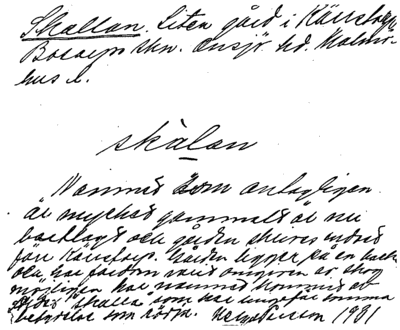 Skallan. Liten gård i Källstorps
Bosarps skn. Onsjö hd. Malmö-
hus l.
skàlan
"Namnet som antagligen
är mycket gammalt är nu
bortlagt och gården skrives endast
före Källstorp. Gården ligger på en backe
och har fordom varit omgiven av skog
möjligen har namnet kommit av
skalla som har ungefär samma
betydelse som röjja. 1931